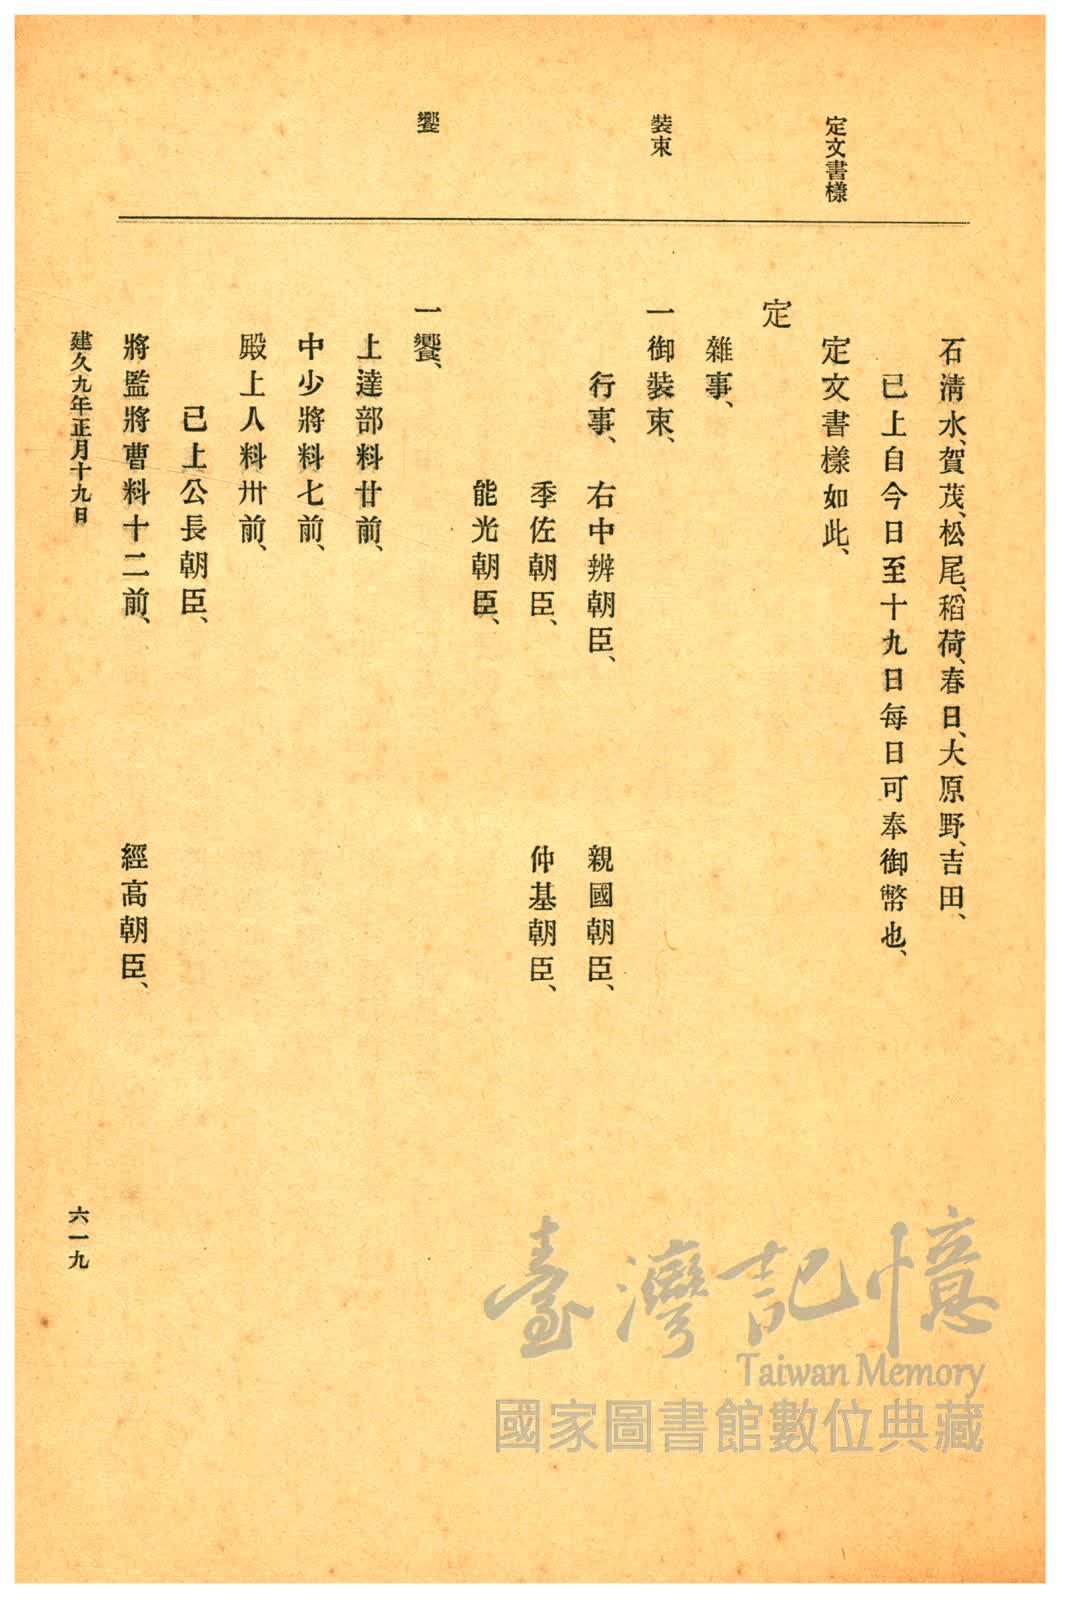 定文書樣
裝束
饗
石淸水、賀茂、松尾、稻荷、春日、大原野、吉田、
已上自今日至十九日每日可奉御幣也、
定文書樣如此、
定
雜事、
一御裝束、
行事、右中辨朝臣、　親國朝臣、
季佐朝臣、　仲基朝臣、
能光朝臣、
一饗、
上達部料廿前、
中少將料七前、
殿上人料卅前、
已上公長朝臣、
將監將曹料十二前、　經高朝臣、
建久九年正月十九日
六一九
臺灣記憶
Taiwan Memory
國家圖書館數位典藏